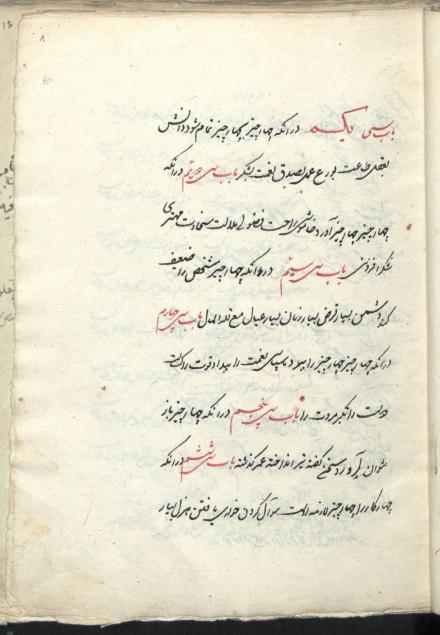 ۸
باب سی یکم در آنکه چهار چیز بچهار چیز تمام شود دانش
بعقل طاعت بورع عمل بصدق نعمت بشکر باب سی دویم در آنکه
چهار چیز چهار چیز آورد خاموشی راحت فضولی ملالت سخاوت مهتری
شکر افزونی باب سی سیم در آنکه چهار چیز شخص را ضعف
کند دشمن بسیار قرض بسیار زنان بسیار عیال مع قلة المال باب سی چهارم
در آنکه چهار چیز چهار چیز را ببرد ناسپاسی نعمت را ببرد قوت را
دولت را کبر مروت را باب سی پنجم در آنکه چهار چیز باز
نتوان آورد سخن گفته تیر انداخته عمر گذشته باب سی ششم در آنکه
چهار کار را چهار چیز لازمه است سوال کردن خواری یافتن هزل بسیار